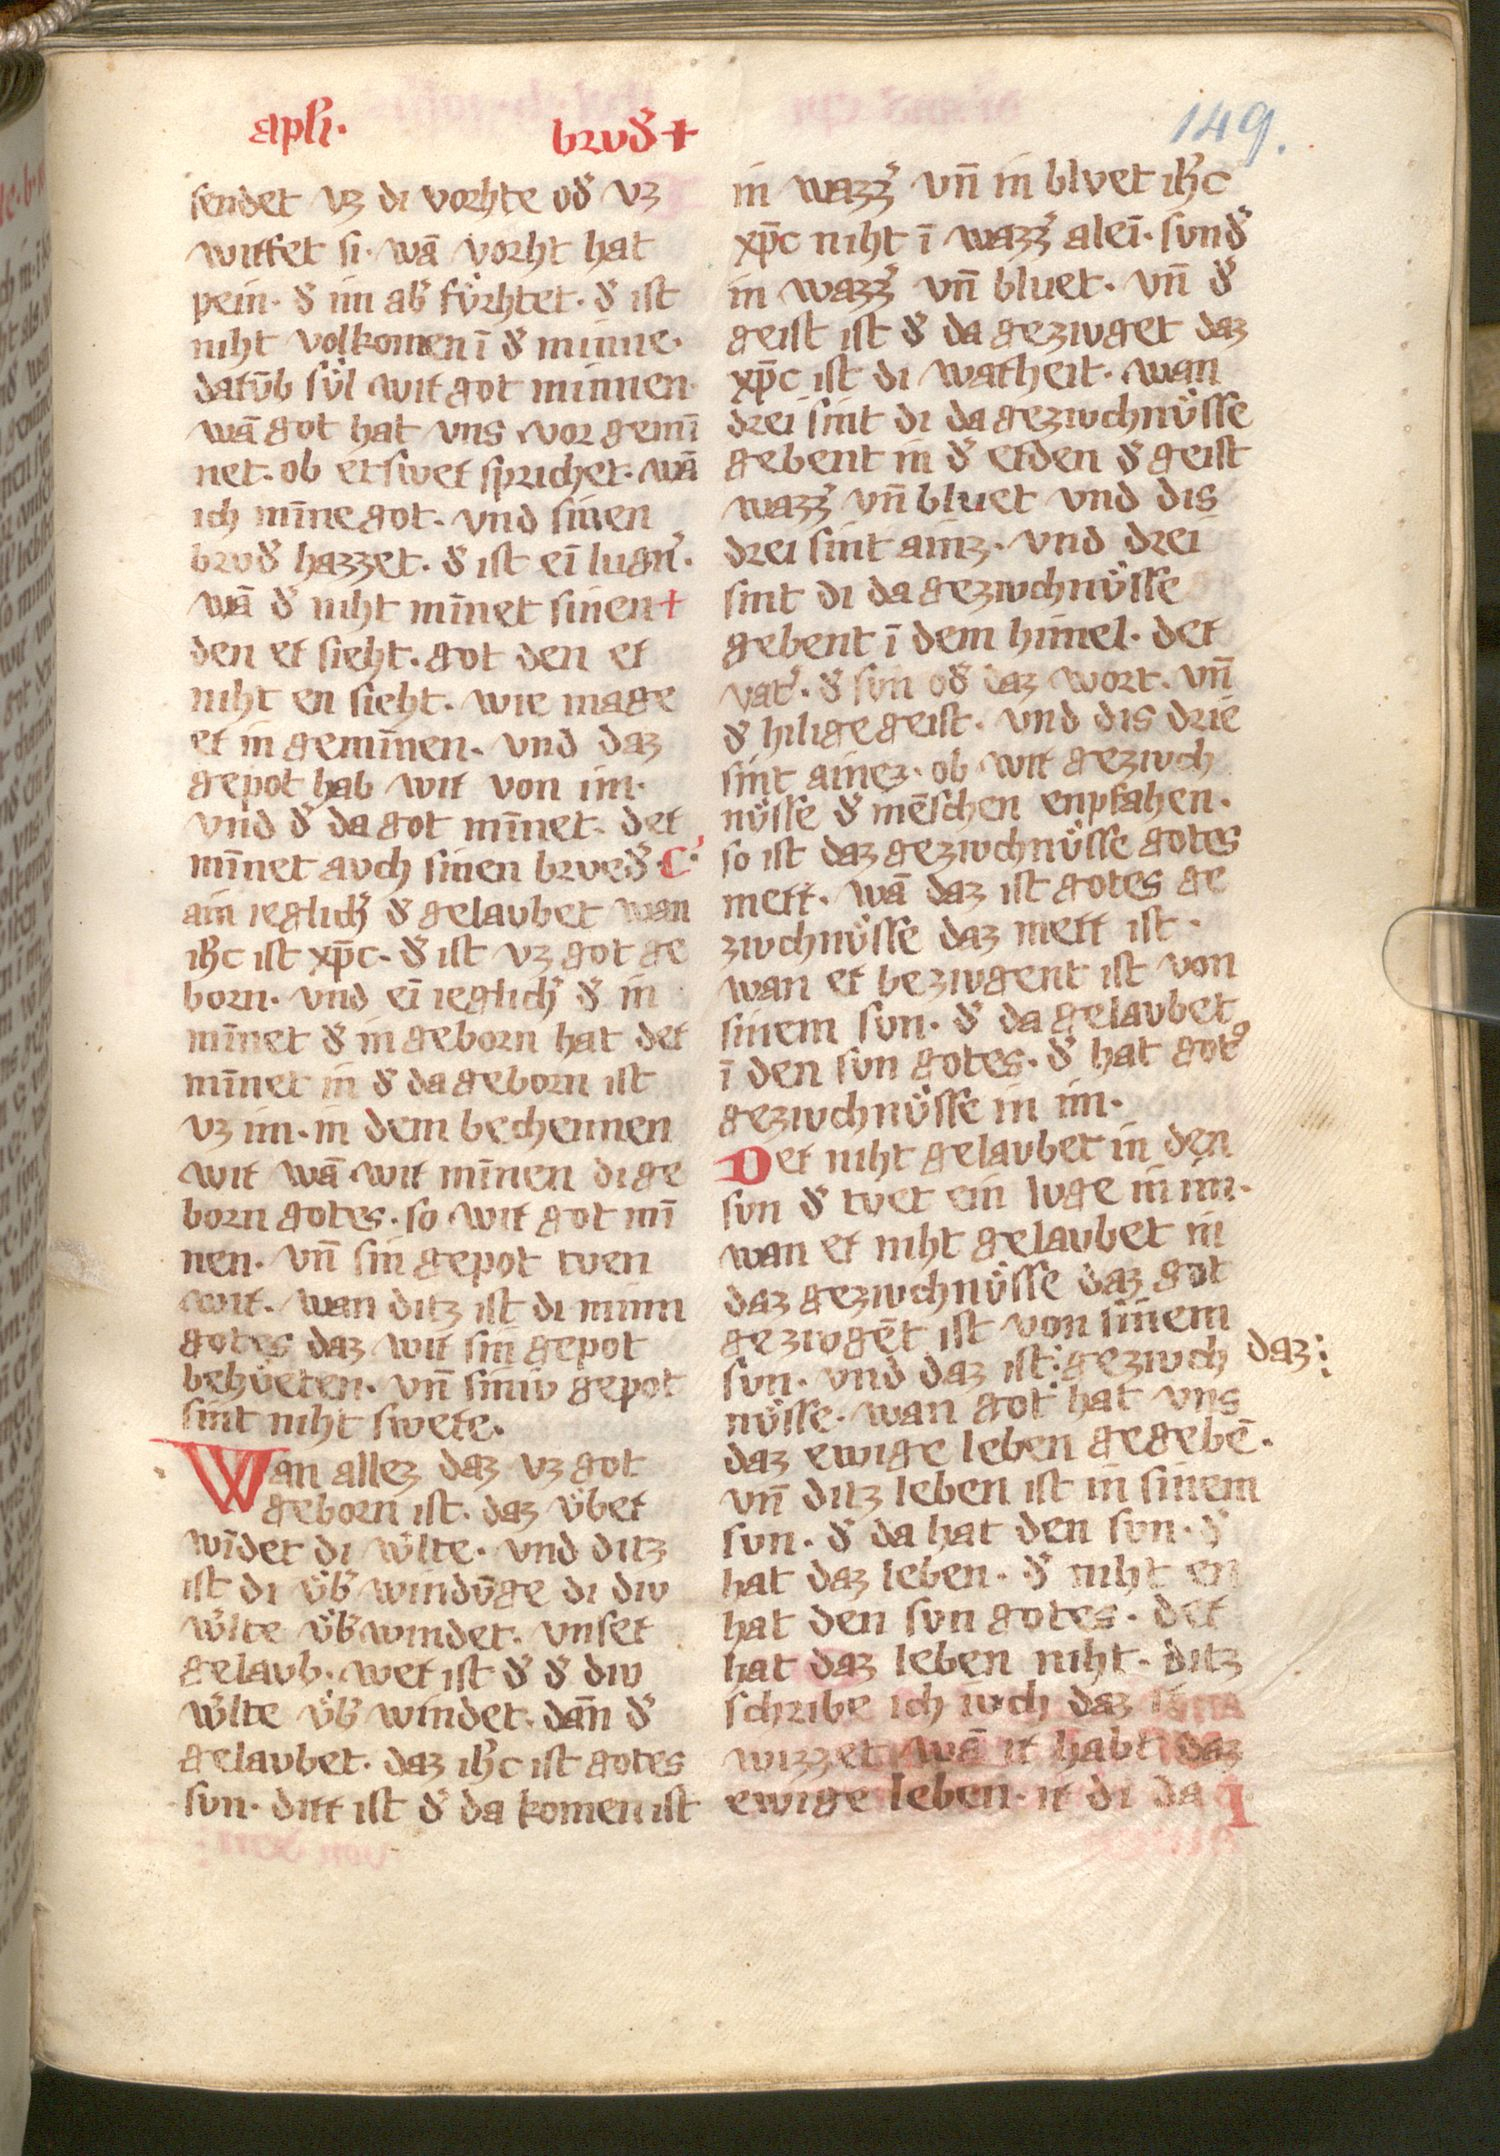 apłi·
brvd̾ +
149.
sendet vz di vorhte od̾ vz
wirfet si· wā vorht hat
pein· d̾ im ab̾ fv̈rhtet· d̾ ist
niht volkomen ī d̾ minne·
darv̄b sv̈l wir got minnen·
wā got hat vns vor gemī
net· ob etswer sprichet· wā
ich mīne got· vnd sinen
brvd̾ hazzet· d̾ ist eī lugn̾·
wā d̾ niht mīnet sinen +
den er sieht· got den er
niht en sieht· wie mage
er in gemīnen· vnd daz
gepot hab wir von im·
vnd d̾ da got mīnet· der
mīnet avch sinen brved̾· C·
ain ieglich̾ d̾ gelavbet wan
ih̾c ist xp̄c· d̾ ist vz got ge
born· vnd eī ieglich̾ d̾ in
mīnet d̾ in geborn hat der
mīnet in d̾ da geborn ist
vz im· in dem bechennen
wir wā wir mīnen di ge
born gotes· so wir got mī
nen· vn̄ sin gepot tven
wir· wan ditz ist di minn
gotes daz wir sin gepot
behv̈eten· vn̄ siniv gepot
sint niht swere·
Wan allez daz vz got
geborn ist· daz v̈ber
wīdet di w̾lte· vnd ditz
ist di v̈b̾windv̄ge di div
w̾lte v̈b̾windet· vnser
gelavb· wer ist d̾ d̾ div
w̾lte v̈b̾windet· dan̄ d̾
gelavbet· daz ih̾c ist gotes
svn· dirr ist d̾ da komen ist
in wazz̾ vn̄ in blvet ih̾c
xp̄c niht ī wazz̾ aleī· svnd̾
in wazz̾ vn̄ bluet· vn̄ d̾
geist ist d̾ da gezivget daz
xp̄c ist di warheit· wan
drei sint di da gezivchnv̈sse
gebent in d̾ erden d̾ geist
wazz̾ vn̄ bluet vnd dis
drei sint ainz· vnd drei
sint di da gezivchnv̈sse
gebent ī dem himel· der
vat̾· d̾ svn od̾ daz wort· vn̄
d̾ hilige geist· vnd dis drie
sint ainez· ob wir gezivch
nv̈sse d̾ mēschen enpfahen·
so ist daz gezivchnv̈sse gotes
merr· wā daz ist gotes ge
zivchnv̈sse daz merr ist·
wan er bezivgent ist von
sinem svn· d̾ da gelavbet
ī den svn gotes· d̾ hat got᾽
gezivchnv̈sse in im·
Der niht gelavbet in den
svn d̾ tvet ein lvge in im·
wan er niht gelavbet in
daz gezivchnv̈sse daz got
gezivgēt ist von sinem
svn· vnd daz ist : gezivch daz :
nv̈sse· wan got hat vns
daz ewige leben gegebē·
vn̄ ditz leben ist in sinem
svn· d̾ da hat den svn· d̾
hat daz leben· d̾ niht en
hat den svn gotes· der
hat daz leben niht· ditz
schribe ich ivch daz ir
wizzet wā ir habt daz
ewige leben· ir di da I